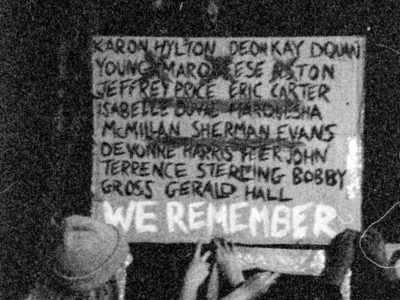 KARON HYLTON DEON KAY DQUAN
YOUNG MARQ ESE ASTON
JEFFREY PRICE ERIC CARTER
ISABELLE DUVAL MARQUESHA
MCMILLAN SHERMAN EVANS
DEVONNE HARRIS PEER JOHN
TERRENCE STERLING BOBBY
GROSS GERALD HALL
WE REMEMBER